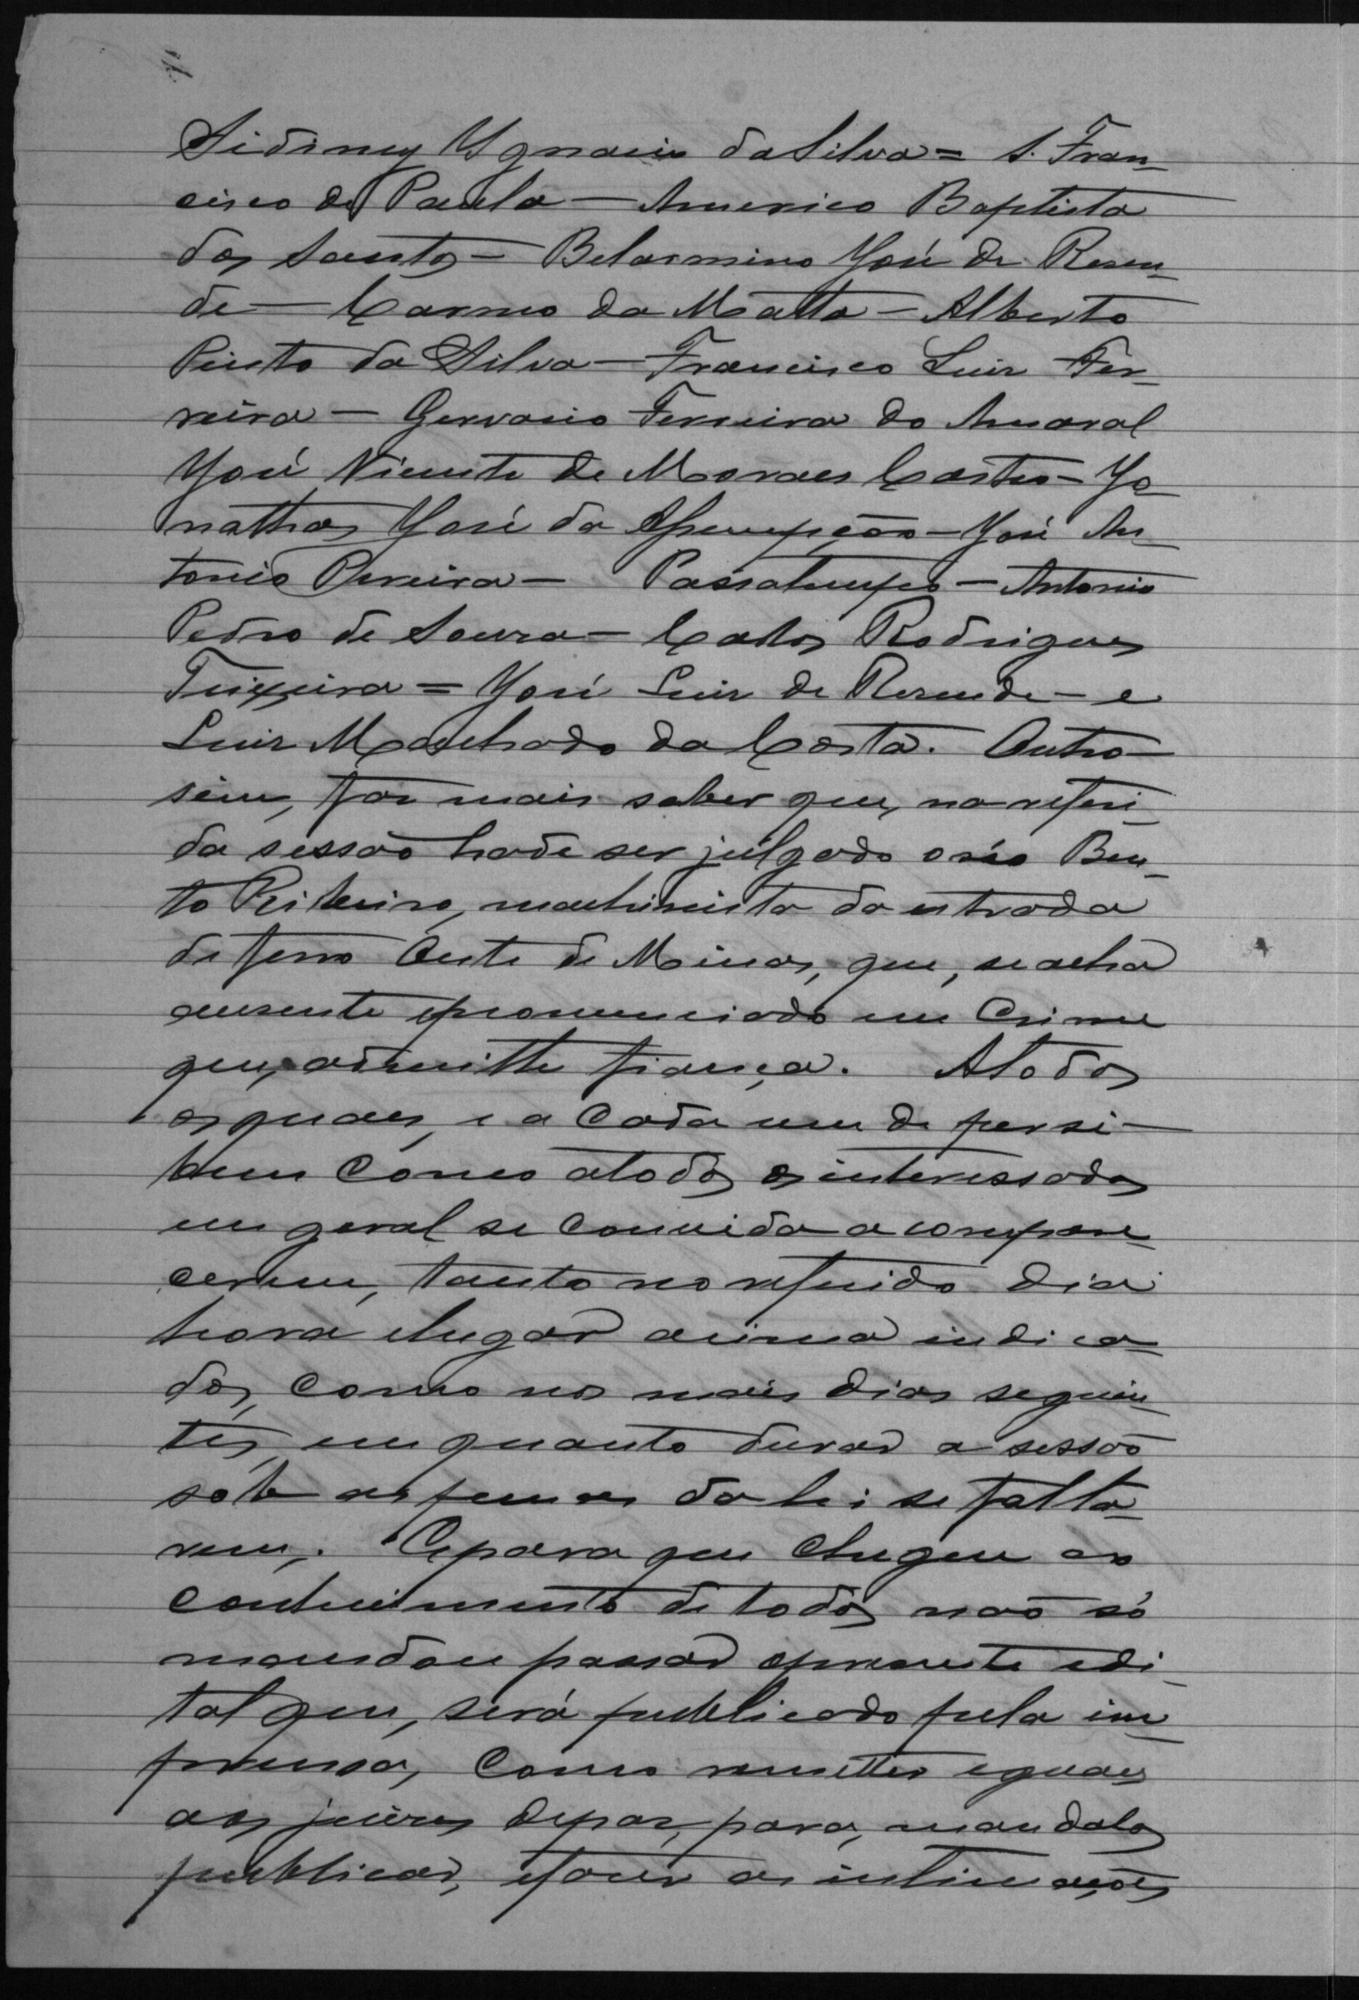 Sidiney Ygnacio da Silva = S. Fran-
cisco de Paula — Americo Baptista
dos Santos — Belarmino José de Resen-
de — Carmo da Matta — Alberto
Pinto da Silva — Francisco Luiz Fer-
reira — Gervasio Ferreira do Amaral
José Vicente de Moraes Castro — Jo-
nathas José da Assumpção — José An-
tonio Pereira — Passatempo — Antonio
Pedro de Souza — Carlos Rodrigues
Teixeira = José Luiz de Resende — e
Luiz Machado da Costa. Outro-
sim, faz mais saber que, na referi-
da sessão hade ser julgado o réo Ben-
to Ribeiro, machinista da estrada
de ferro Oeste de Minas, que, se acha
ausente e pronunciado em Crime
que, admitte fiança. A todos
os quaes, e a cada um de per si-
bem como a todos os interessados
em geral se convida a compare-
cerem, tanto no referido dia
hora e lugar acima indica-
dos, como nos mais dias seguin-
tes, em quanto durar a sessão
sob as penas da lei se falta-
rem. E para que chegue ao
conhecimento de todos não só
mandou passar o presente edi-
tal que, será publicado pela im-
prensa, como remetter eguaes
aos juizes de paz, para, mandalos
publicar, e fazer as intimações